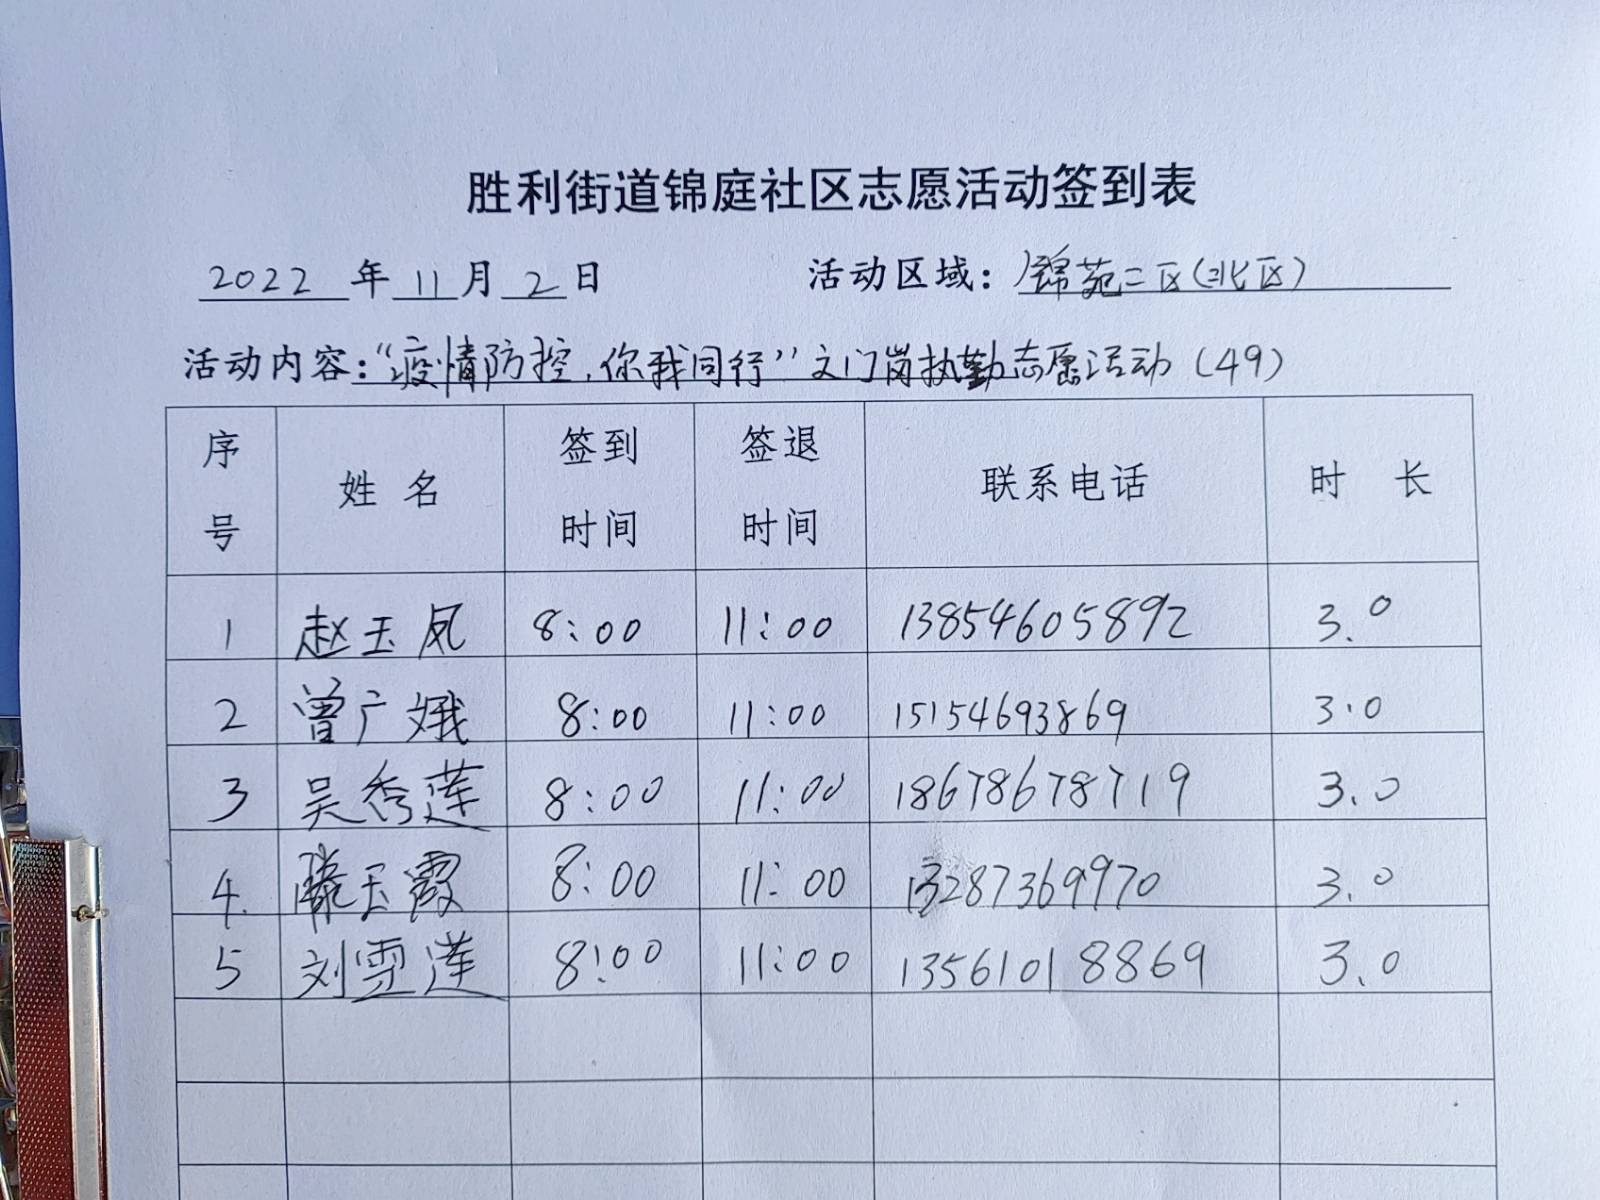 胜利街道锦庭社区志愿活动签到表
2022年11月2日 活动区域：锦苑二区(北区)
活动内容：“疫情防控，你我同行”文门岗执勤志愿活动（49）
序号 姓名 签到时间 签退时间 联系电话 时长
1 赵玉凤 8:00 11:00 13854605892 3.0
2 曾广娥 8:00 11:00 15154693869 3.0
3 吴秀莲 8:00 11:00 18678678719 3.0
4. 滕玉霞 8:00 11:00 13287369970 3.0
5 刘雪莲 8:00 11:00 13561018869 3.0